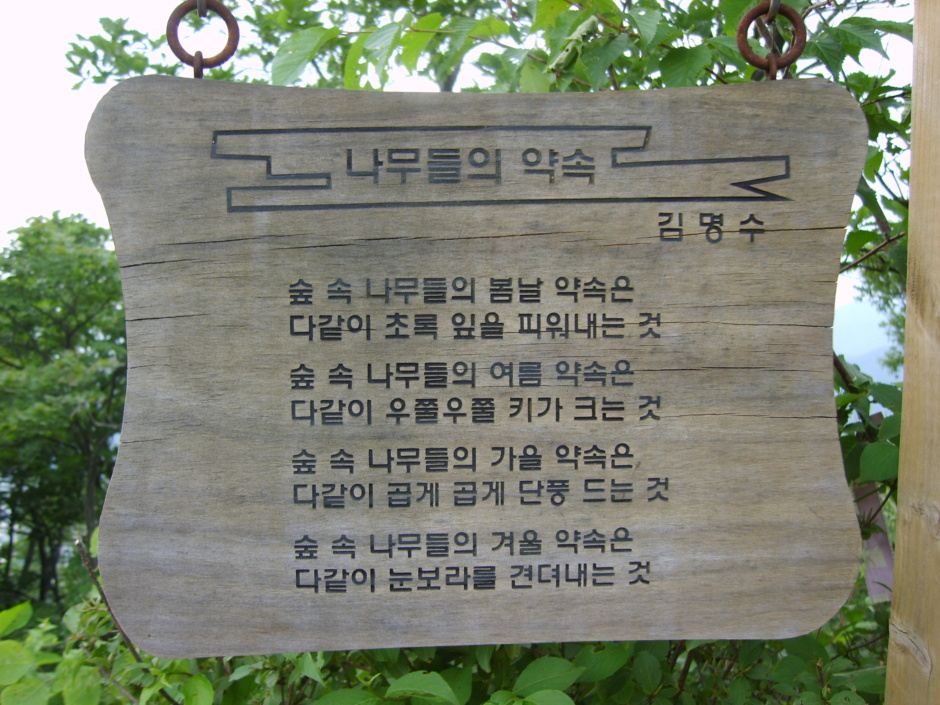 나무들의 약속
김명수
숲 속 나무들의 봄날 약속은
다같이 초록 잎을 피워내는 것
숲 속 나무들의 여름 약속은
다같이 우쭐우쭐 키가 크는 것
숲 속 나무들의 가을 약속은
다같이 곱게 곱게 단풍 드는 것
숲 속 나무들의 겨울 약속은
다같이 눈보라를 견뎌내는 것